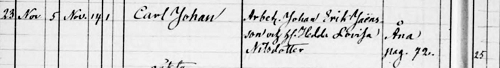 23 Nov 5 Nov. 1 Carl Johan Arbet. Johan Erik Jans
son och h. Hedda Lovisa Åna
Nilsdotter pag. 72. 25